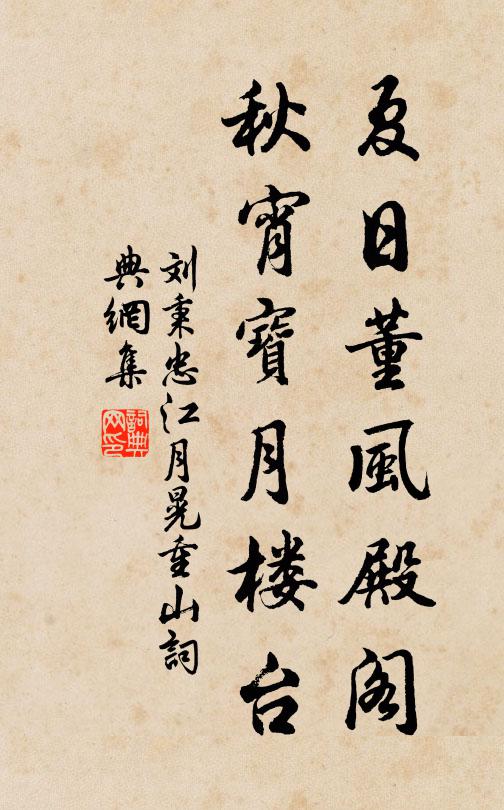 夏日董風殿阁
秋宵寶月楼台
刘秉忠江月晃重山詞
典網集
詞典網印